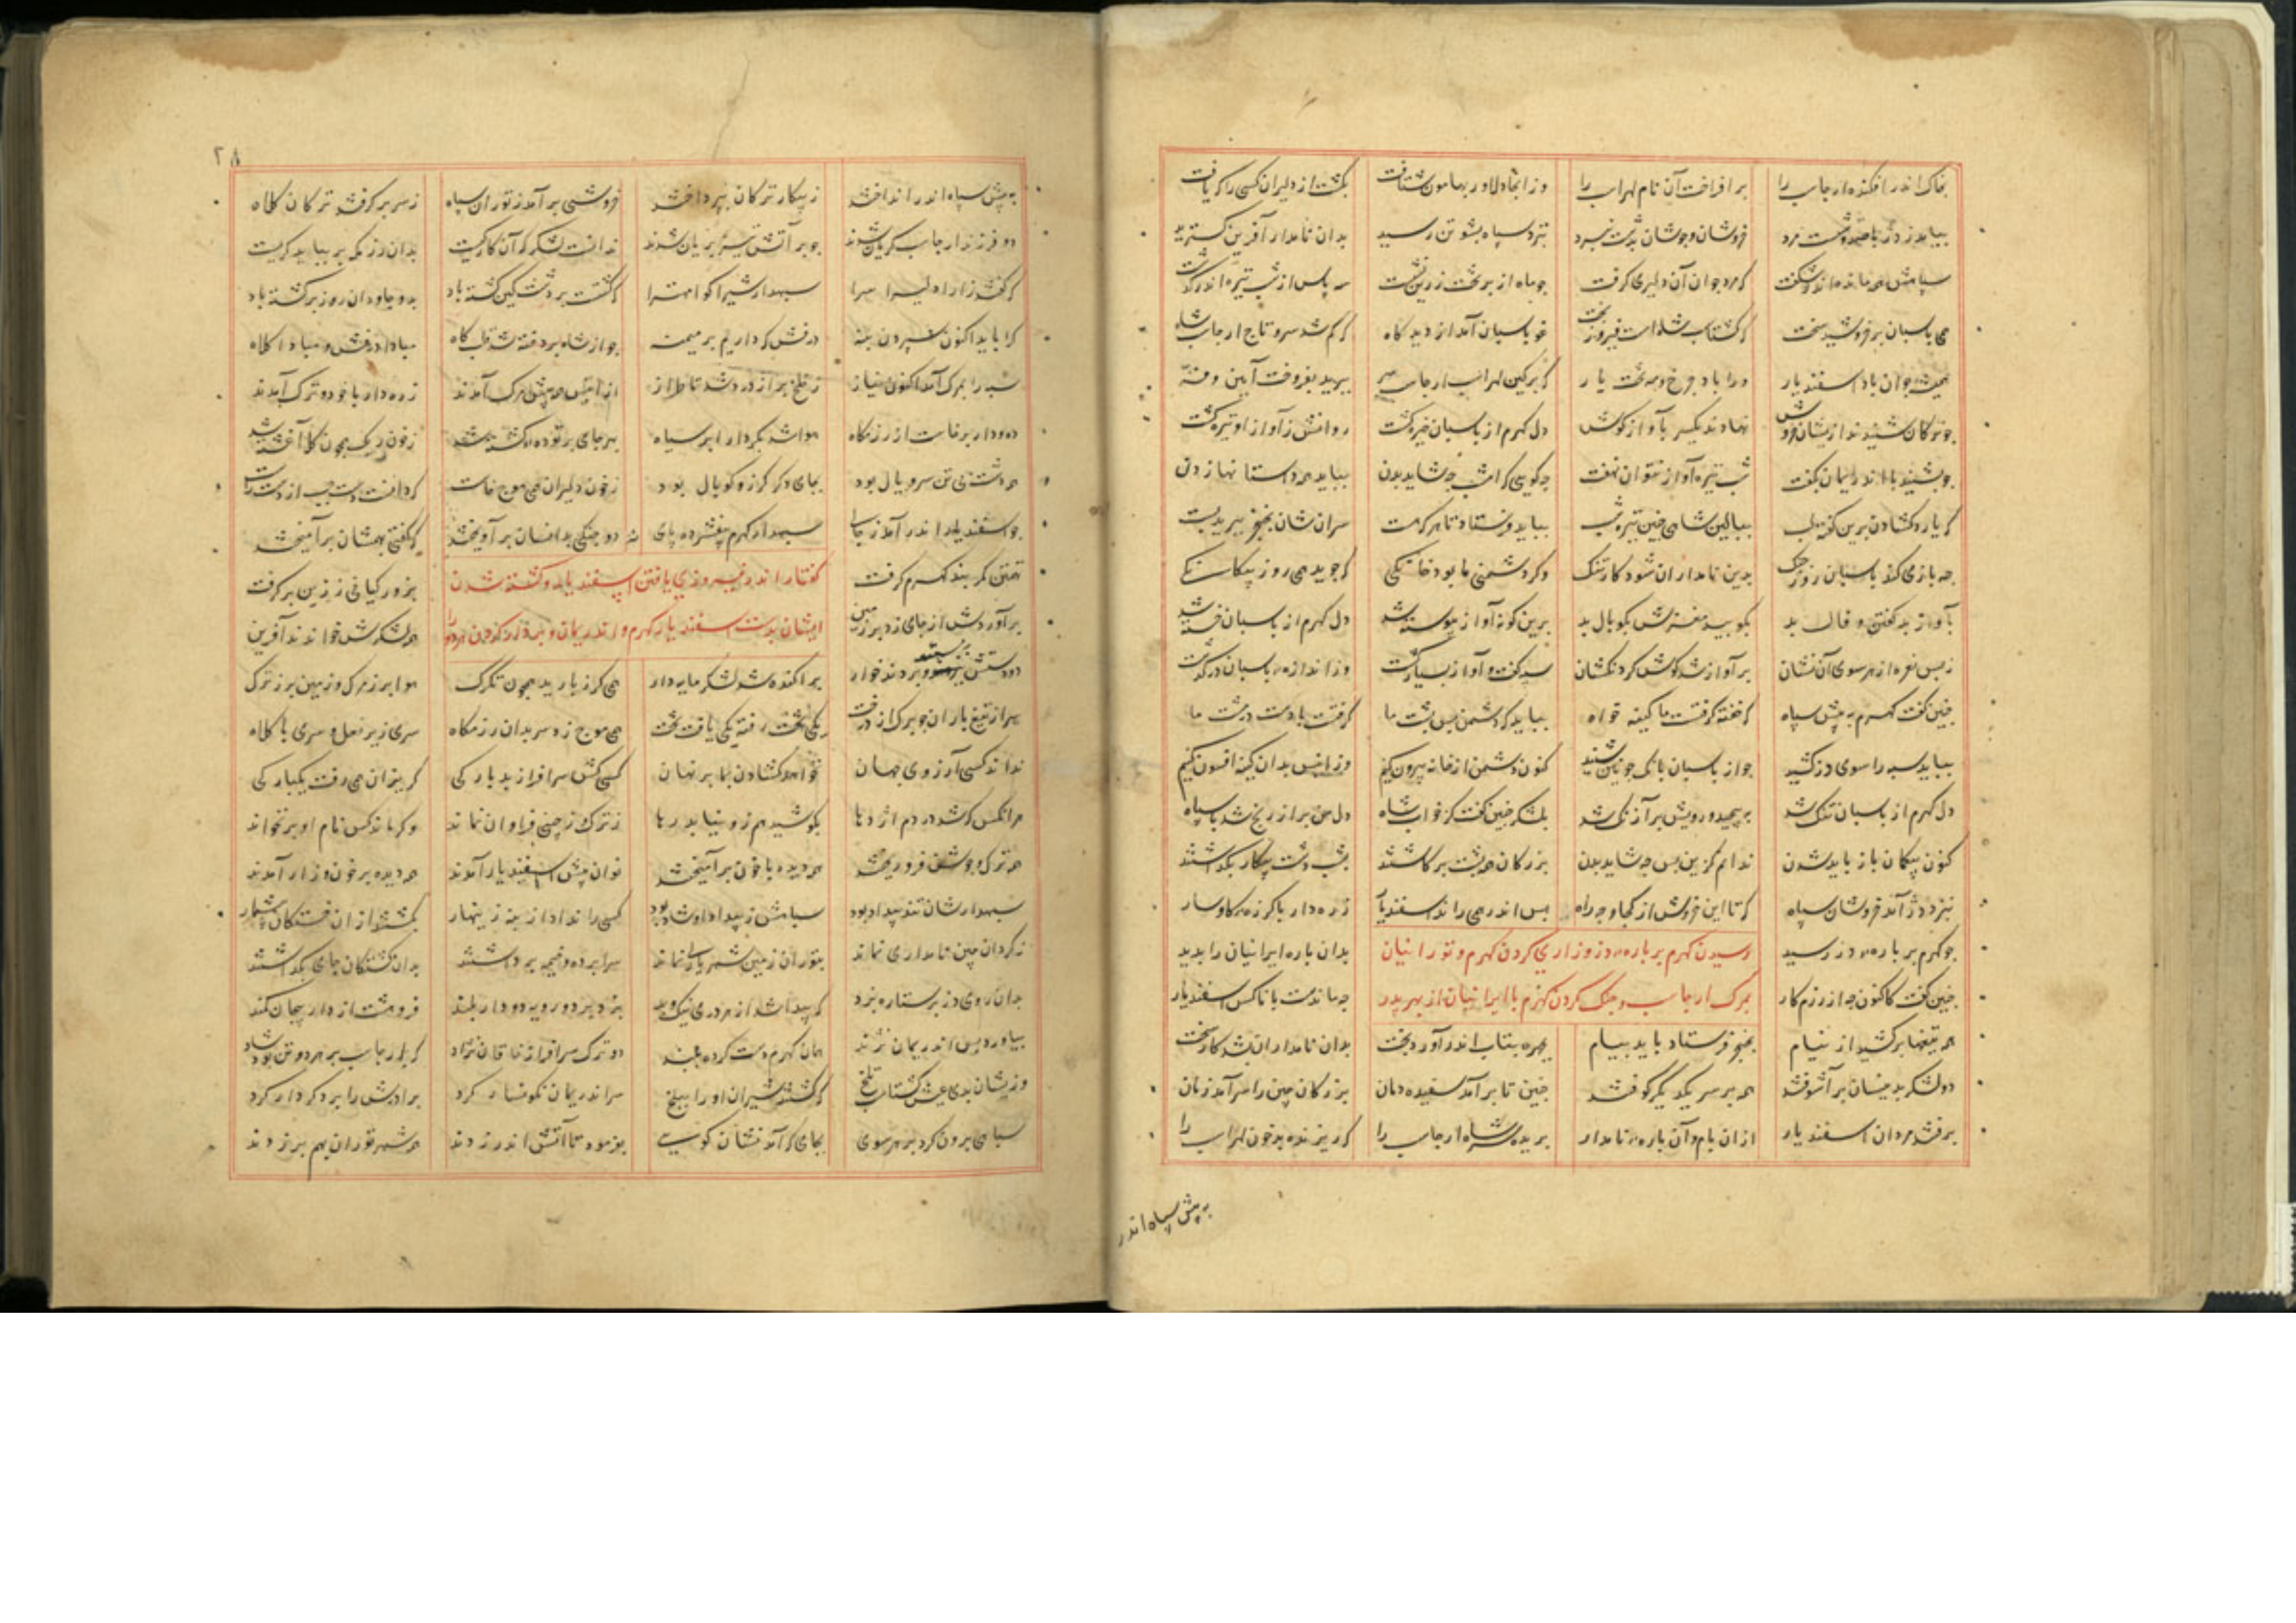 بخاک اندر افکنده ارجاسب را برافراخت آن نام لهراسب را وز انجا دلاور بهامون شتافت بکشت از دلیران کسی را که یافت
بیامد ز دژ با صد و شصت مرد خروشان و جوشان بدشت نبرد بنزد سپاه پشوتن رسید بدان نامدار آفرین گسترید
سپاهش همه مانده اندر شگفت که مرد جوان آن دلیری گرفت چو ماه از بر تخت زرین نشست سه پاس از شب تیره اندر گذشت
همی پاسبان برخروشید سخت که گشتاسب شاهست فیروز بخت غو پاسبان آمد از دیدگاه که گم شد سر و تاج ارجاسب شاه
همیشه جوان باد اسفندیار ورا باد چرخ و مه و بخت یار که بر کین لهراسب ارجاسب سر ببرید بفروخت آیین و فر
چو ترکان شنیدند ازیشان خروش نهادند یکسر بآواز گوش دل کهرم از پاسبان خیره گشت روانش ز آواز او تیره گشت
چو بشنید با اندریمان بگفت شب تیره آواز نتوان نهفت چه گویی که امشب چه شاید بدن بباید همه داستانها زدن
که یارد گشادن برین گونه لب ببالین شاهی چنین تیره شب بباید فرستاد تا هر که هست سران شان بخنجر ببرید پست
چه بازی کند پاسبان روز جنگ بدین نامداران شود کار تنگ وگر دشمنی ما بود خانگی که جوید همی روز بیگانگی
بآواز بد گفتن و فال بد بکوبید مغزش بکوپال بد برین گونه آواز پیوسته شد دل کهرم از پاسبان خسته شد
ز بس نعره از هر سوی آن نشان پر آواز شد گوش گردنکشان سپه گفت و آواز بسیار گشت وز اندازه پاسبان درگذشت
چنین گفت کهرم به پیش سپاه که خفته گرفت ما کینه خواه بباید که دشمن پس پشت ما گرفت باد و دست دشت ما
بباید سپه را سوی دژ کشید چو از پاسبان بانگ چونین شنید کنون دشمن از خانه بیرون کنیم وزانپس بدان کینه افسون کنیم
دل کهرم از پاسبان تنگ شد بپیچید و رویش پر آژنگ شد بلشکر چنین گفت کز خواب شاه دل من پر از رنج شد با سپاه
کنون بیگمان باز باید شدن ندانم کزین پس چه شاید بدن بزرگان همه پشت برکاشتند بشب دشت پیکار بگذاشتند
بنزد دژ آمد خروشان سپاه که تا این خروش از کجا و چه راه پس اندر همی راند اسفندیار زره دار با گرزه گاوسار
چو کهرم بر باره دژ رسید بدان باره ایرانیان را بدید
رسیدن کهرم بر باره دز و زاری کردن کهرم و تورانیان
چنین گفت کاکنون چه از رزم کار چه ماندست با ناکس اسفندیار
بمرگ ارجاسب و جنگ کردن کهرم با ایرانیان از بهر پدر
همه تیغها برکشید از نیام بخنجر فرستاد باید پیام بچهره بتاب اندر آورد بخت بدان نامداران شد کار سخت
دو لشکر بدینسان برآشوفتند همه بر سر یکدیگر کوفتند چنین تا برآمد سفیده دمان بزرگان چین را سرآمد زمان
برفتند مردان اسفندیار از ان بام و آن باره نامدار بریده سر شاه ارجاسب را که ریزنده بد خون لهراسب را
به پیش سپاه اندر
۲۸
به پیش سپاه اندر انداختند ز پیکار ترکان بپرداختند خروشی برآمد ز توران سپاه ز سر برگرفتند ترکان کلاه
دو فرزند ارجاسب گریان شدند چو بر آتش تیز بریان شدند ندانست لشکر که آن کار چیست بدان رزمگه بر بباید گریست
که گفتند زارا دلیرا سرا سپهدار شیرا گوا مهترا که گشتت بر دشت کین کشته باد بدو جاودان روز برگشته باد
کرا باید اکنون سپردن بنه درفش که داریم بر میمنه چو از شاه پردخته شد قلبگاه مبادا درفش و مبادا کلاه
سپه را بمرگ آمد اکنون نیاز ز خلخ پر از درد شد تا طراز ازانپس همه پیش مرگ آمدند زره دار با خود و ترک آمدند
ده و دار برخاست از رزمگاه هوا شد بکردار ابر سیاه بهر جای بر توده کشته شد ز خون ریگ همچون گل آغشته شد
همه دشت بی تن سر و یال بود بجای دگر گرز و کوپال بود ز خون دلیران همی موج خاست که دانست دست چپ از دست راست
چو اسفندیار اندر آمد ز جای سپهدار کهرم بیفشرد پای دو جنگی بدانسان برآویختند که گفتی بهمشان برآمیختند
تهمتن کمربند کهرم گرفت بزور کیانی ز زین برگرفت
گفتار اندر فیروزی یافتن اسفندیار و کشته شدن
برآوردش از جای زد بر زمین همه لشکرش خواندند آفرین
ایشان بدست اسفندیار کهرم و اندریمان و بردار کردن هر دو را
دو دستش ببستند و بردند خوار پراکنده شد لشکر مایه دار همی گرز بارید همچون تگرگ هوا پر ز مرگ و زمین پر ز ترگ
سر از تیغ باران چو برگ از درخت یکی تخت رفته یکی یافت تخت همی موج زد سر بدان رزمگاه سری زیر نعل و سری با کلاه
نداند کسی آرزوی جهان نخواهد گشادن بما بر نهان کسی کش سرافراز بد بارگی گریزان همی رفت یکبارگی
هر انکس که شد در دم اژدها بکوشید هم زو نیابد رها ز ترک و ز چینی فراوان نماند وگر ماند کس نام او برنخواند
همه ترک و جوشن فرو ریختند همه دیده با خون برآمیختند نوان پیش اسفندیار آمدند همه دیده پر خون و زار آمدند
سپهدارشان تند بیداد بود سپاهش ز بیداد او شاد بود کسی را نداد از بنه زینهار بکشتند از ان خستگان بیشمار
ز گردان چین نامداری نماند بتوران زمین شهریاری نماند سراپرده و خیمه برداشتند بدان خستگان جای بگذاشتند
بدان روی دژ بر ستاره بزد که پیدا شد از مردمی نیک و بد بزد بر در و رویه دو دار بلند فروهشت از دار پیچان کمند
بیاورد پس اندریمان نژند همان کهرم دست کرده ببند دو ترک سرافراز خاقان نژاد که ارجاسب بر هر دو تن بود شاد
وزیشان بدی عیش گشتاسب تلخ که کشتند شیران او را ببلخ سر اندریمان نگونسار کرد برادرش را بر در دار کرد
سپاهی برون کرد بر هر سوی بجای که آمد نشان گوی بفرمود تا آتش اندر زدند همه شهر توران بهم بر زدند